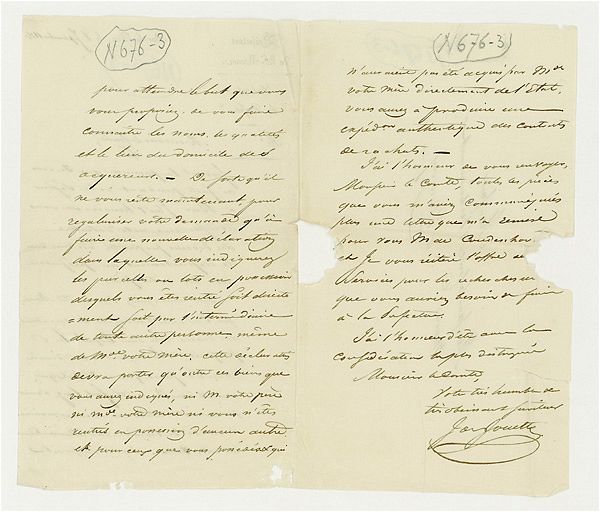 N 676-3
pour attendre le but que vous
vous proposez, de vous faire
connaitre les noms, les qualités
et le lieu du domicile de
acquereurs. — De sorte qu'il
ne vous reste maintenant pour
regulariser votre demande qu'à
faire une nouvelle déclaration
dans laquelle vous indiquerez
les parcelles ou lots en possession
desquels vous êtes rentré soit directe
=ment soit par l'intermédiaire
de toute autre personne, même
de Mde votre mère, cette déclaration
devra porter qu'outre ces biens que
vous aurez indiqués, ni M. votre père
ni Mde votre mère ni vous n'êtes
rentrés en possession d'aucun autre
et pour ceux que vous possédez qui
N 676-3
n'auraient pas été acquis par Mde
votre Mère directement de l'Etat,
vous aurez à produire une
expédon authentique des contrats
de rachats. —
J'ai l'honneur de vous envoyer,
Monsieur le Comte, toutes les pièces
que vous m'aviez communiqués
plus une lettre que m'a remise
pour vous M. de
et Je vous réitère l'offre de
services pour les recherches
que vous auriez besoin de faire
à la Préfecture.
J'ai l'honneur d'être avec la
considération la plus distinguée
Monsieur le Comte,
Votre très humble de
très obeissant serviteur